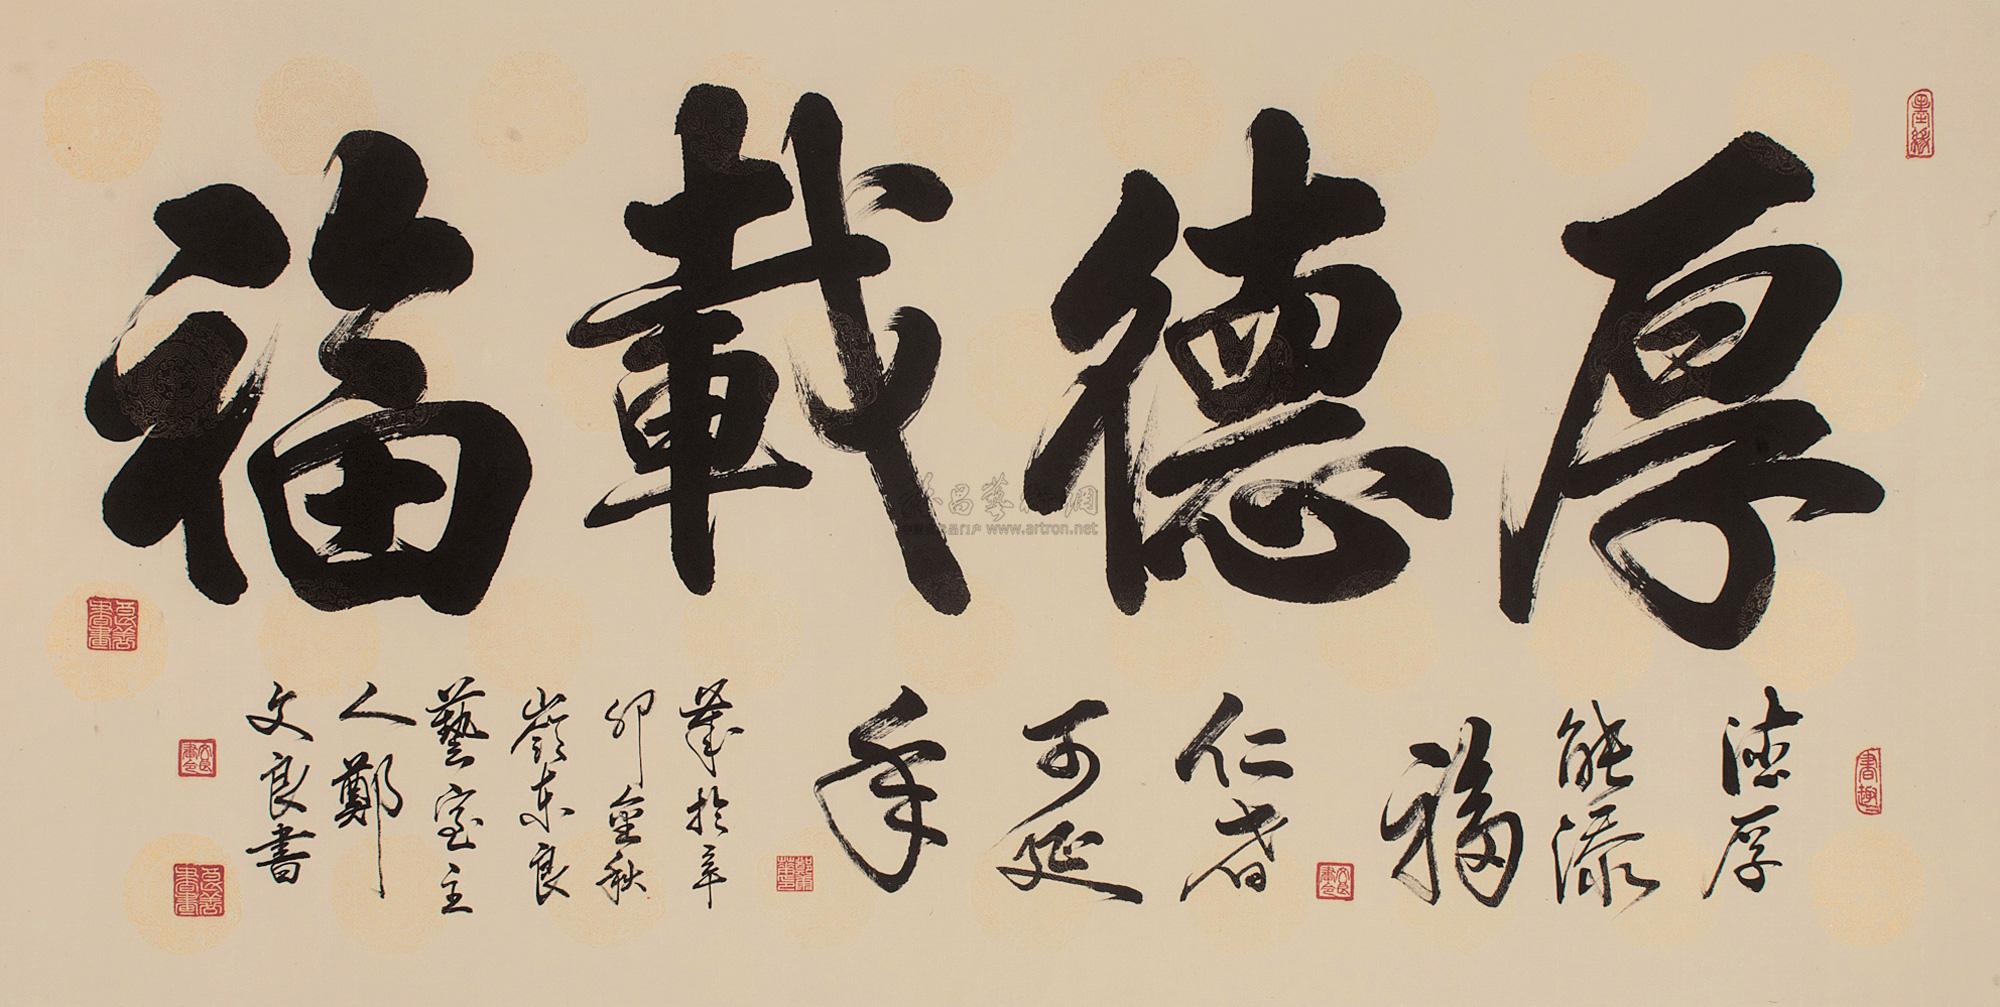 厚德載福
德厚
能添
福
仁者
可延
年
歲於辛
卯金秋
嶺東良
藝室主
人鄭
文良書
www.artron.net